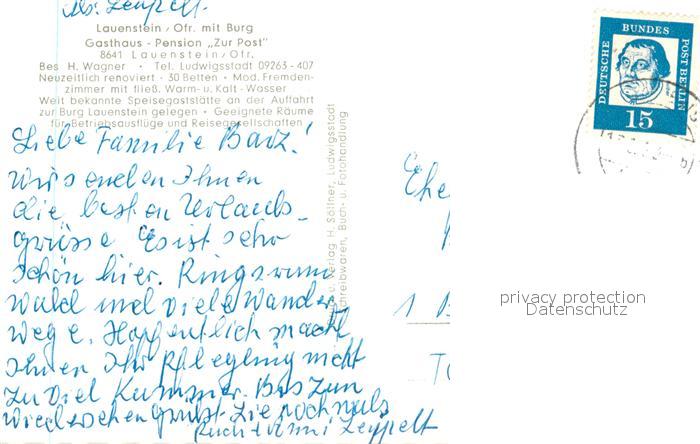 Abs. Zeppelt.
Lauenstein/Ofr. mit Burg
Gasthaus - Pension „Zur Post"
8641 Lauenstein/Ofr.
Bes. H. Wagner • Tel. Ludwigsstadt 09263-407
Neuzeitlich renoviert · 30 Betten • Mod. Fremden-
zimmer mit fließ. Warm- u. Kalt-Wasser
Weit bekannte Speisegaststätte an der Auffahrt
zur Burg Lauenstein gelegen • Geeignete Räume
für Betriebsausflüge und Reisegesellschaften
Liebe Familie Barz!
Wir senden Ihnen
die besten Urlaubs-
grüsse Es ist sehr
schön hier. Ringsrum
wald und viele Wander
wege. Hoffentlich macht
Ihnen Ihr Pflegling nicht
zu viel Kummer. Bis zum
Wiedersehen grüsst Sie nochmals
Zeppelt
u. Verlag H. Söllner, Ludwigsstadt
Schreibwaren, Buch- u. Fotohandlung
Ehe
1 B
DEUTSCHE BUNDESPOST BERLIN
15
privacy protection
Datenschutz